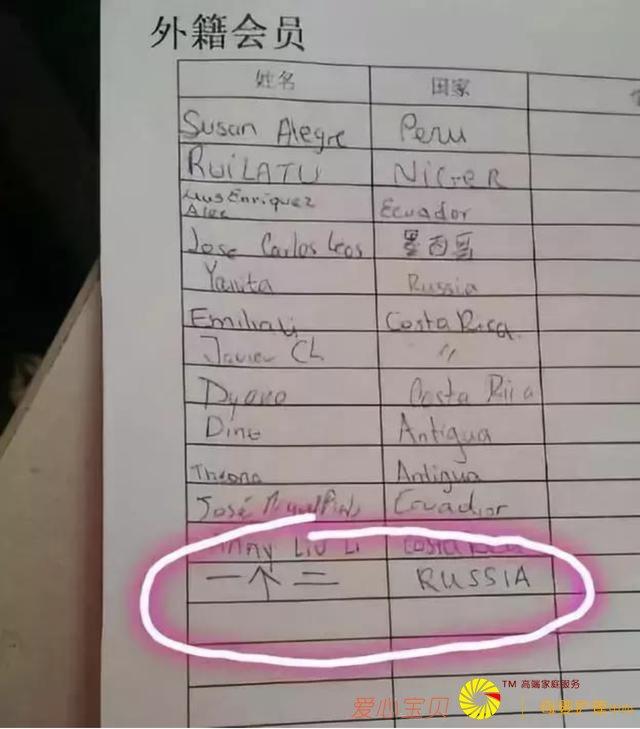 外籍会员
姓名 国家
Susan Alegre Peru
RUILATU NIGER
Enriquez
Alec Ecuador
Jose Carlos Leos 墨西哥
Yanita Russia
Emilia Li Costa Rica
Javier CH "
Dyana Costa Rica
Dine Antigua
Theona Antigua
José Ecuador
LIU LI Costa Rica
一个二 RUSSIA
TM 高端家庭服务
爱心宝贝